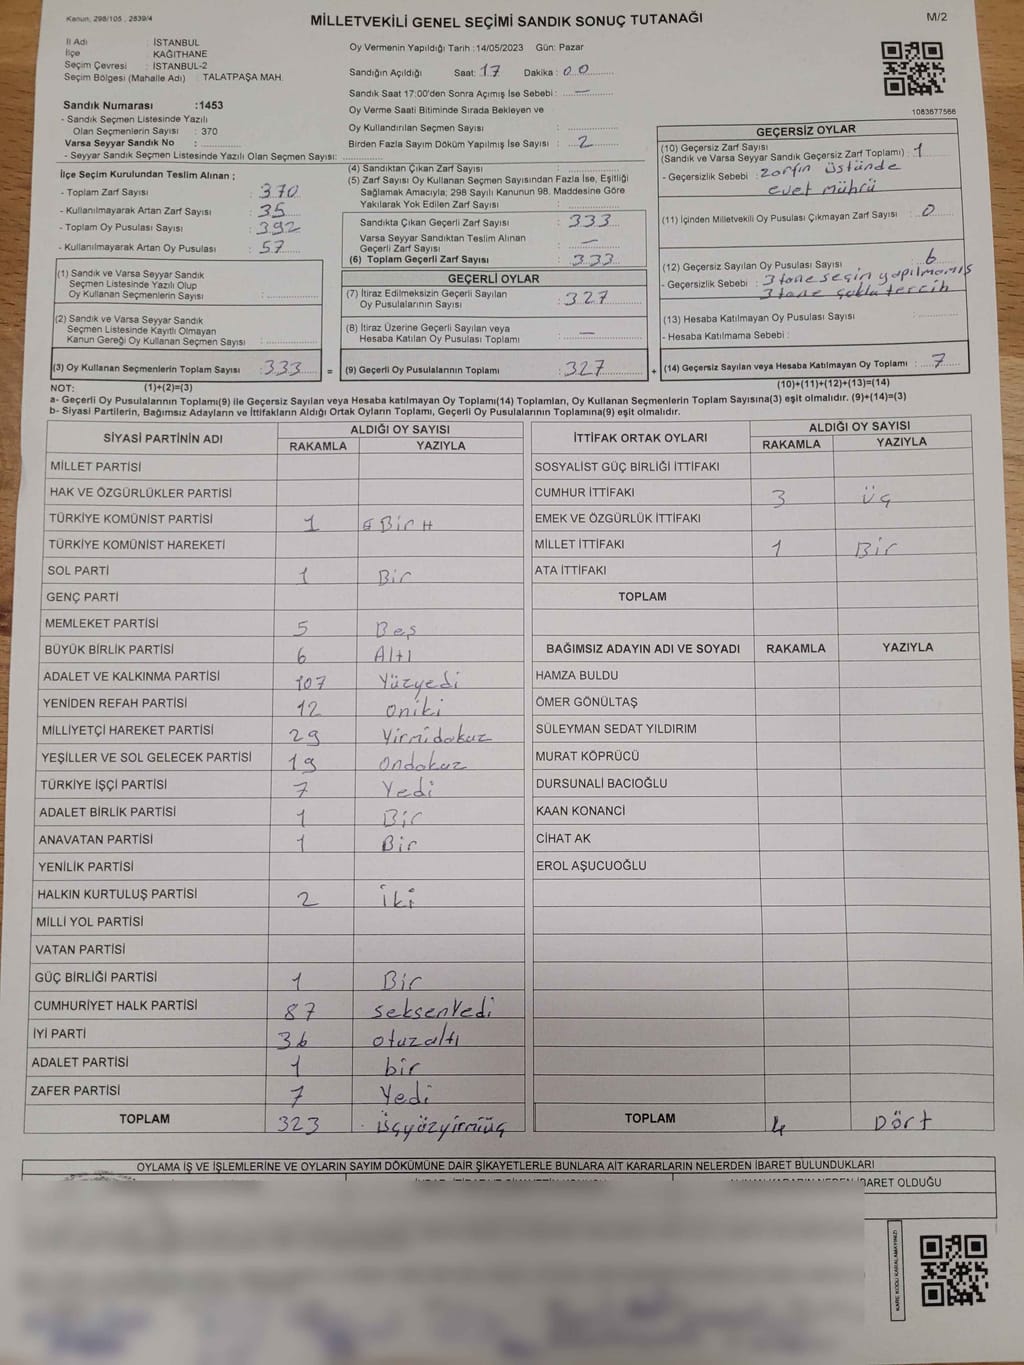 Kanun, 298/105 , 2839/4
MİLLETVEKİLİ GENEL SEÇİMİ SANDIK SONUÇ TUTANAĞI
M/2
İl Adı : İSTANBUL
İlçe : KAĞITHANE
Seçim Çevresi : İSTANBUL-2
Seçim Bölgesi (Mahalle Adı) : TALATPAŞA MAH.
Sandık Numarası :1453
- Sandık Seçmen Listesinde Yazılı
Olan Seçmenlerin Sayısı : 370
Varsa Seyyar Sandık No :
- Seyyar Sandık Seçmen Listesinde Yazılı Olan Seçmen Sayısı:
İlçe Seçim Kurulundan Teslim Alınan ;
- Toplam Zarf Sayısı : 370
- Kullanılmayarak Artan Zarf Sayısı : 35
- Toplam Oy Pusulası Sayısı : 392
- Kullanılmayarak Artan Oy Pusulası : 57
(1) Sandık ve Varsa Seyyar Sandık
Seçmen Listesinde Yazılı Olup
Oy Kullanan Seçmenlerin Sayısı :
(2) Sandık ve Varsa Seyyar Sandık
Seçmen Listesinde Kayıtlı Olmayan
Kanun Gereği Oy Kullanan Seçmen Sayısı :
(3) Oy Kullanan Seçmenlerin Toplam Sayısı :333 =
Oy Vermenin Yapıldığı Tarih :14/05/2023 Gün: Pazar
Sandığın Açıldığı Saat: 17 Dakika : 00
Sandık Saat 17:00'den Sonra Açımış İse Sebebi : —
Oy Verme Saati Bitiminde Sırada Bekleyen ve
Oy Kullandırılan Seçmen Sayısı :
Birden Fazla Sayım Döküm Yapılmış İse Sayısı : 2
(4) Sandıktan Çıkan Zarf Sayısı :
(5) Zarf Sayısı Oy Kullanan Seçmen Sayısından Fazla İse, Eşitliği
Sağlamak Amacıyla; 298 Sayılı Kanunun 98. Maddesine Göre
Yakılarak Yok Edilen Zarf Sayısı :
Sandıkta Çıkan Geçerli Zarf Sayısı : 333
Varsa Seyyar Sandıktan Teslim Alınan
Geçerli Zarf Sayısı : —
(6) Toplam Geçerli Zarf Sayısı : 333
GEÇERLİ OYLAR
(7) İtiraz Edilmeksizin Geçerli Sayılan
Oy Pusulalarının Sayısı : 327
(8) İtiraz Üzerine Geçerli Sayılan veya
Hesaba Katılan Oy Pusulası Toplamı : —
(9) Geçerli Oy Pusulalarının Toplamı :327 +
1083677566
GEÇERSİZ OYLAR
(10) Geçersiz Zarf Sayısı
(Sandık ve Varsa Seyyar Sandık Geçersiz Zarf Toplamı) : 1
- Geçersizlik Sebebi : zarfın üstünde
evet mührü
(11) İçinden Milletvekili Oy Pusulası Çıkmayan Zarf Sayısı : 0
(12) Geçersiz Sayılan Oy Pusulası Sayısı : 6
- Geçersizlik Sebebi : 3 tane seçin yapılmamış
3 tane çoklu tercih
(13) Hesaba Katılmayan Oy Pusulası Sayısı :
- Hesaba Katılmama Sebebi :
(14) Geçersiz Sayılan veya Hesaba Katılmayan Oy Toplamı : 7
NOT: (1)+(2)=(3)
(10)+(11)+(12)+(13)=(14)
a- Geçerli Oy Pusulalarının Toplamı(9) ile Geçersiz Sayılan veya Hesaba katılmayan Oy Toplamı(14) Toplamları, Oy Kullanan Seçmenlerin Toplam Sayısına(3) eşit olmalıdır. (9)+(14)=(3)
b- Siyasi Partilerin, Bağımsız Adayların ve İttifakların Aldığı Ortak Oyların Toplamı, Geçerli Oy Pusulalarının Toplamına(9) eşit olmalıdır.
SİYASİ PARTİNİN ADI ALDIĞI OY SAYISI
RAKAMLA YAZIYLA
MİLLET PARTİSİ
HAK VE ÖZGÜRLÜKLER PARTİSİ
TÜRKİYE KOMÜNİST PARTİSİ 1 Bir
TÜRKİYE KOMÜNİST HAREKETİ
SOL PARTİ 1 Bir
GENÇ PARTİ
MEMLEKET PARTİSİ 5 Beş
BÜYÜK BİRLİK PARTİSİ 6 Altı
ADALET VE KALKINMA PARTİSİ 107 Yüzyedi
YENİDEN REFAH PARTİSİ 12 Oniki
MİLLİYETÇİ HAREKET PARTİSİ 29 Yirmidokuz
YEŞİLLER VE SOL GELECEK PARTİSİ 19 Ondokuz
TÜRKİYE İŞÇİ PARTİSİ 7 Yedi
ADALET BİRLİK PARTİSİ 1 Bir
ANAVATAN PARTİSİ 1 Bir
YENİLİK PARTİSİ
HALKIN KURTULUŞ PARTİSİ 2 İki
MİLLİ YOL PARTİSİ
VATAN PARTİSİ
GÜÇ BİRLİĞİ PARTİSİ 1 Bir
CUMHURİYET HALK PARTİSİ 87 seksenYedi
İYİ PARTİ 36 otuzaltı
ADALET PARTİSİ 1 bir
ZAFER PARTİSİ 7 Yedi
TOPLAM 323 üçyözyirmiüç
İTTİFAK ORTAK OYLARI ALDIĞI OY SAYISI
RAKAMLA YAZIYLA
SOSYALİST GÜÇ BİRLİĞİ İTTİFAKI
CUMHUR İTTİFAKI 3 üç
EMEK VE ÖZGÜRLÜK İTTİFAKI
MİLLET İTTİFAKI 1 Bir
ATA İTTİFAKI
TOPLAM
BAĞIMSIZ ADAYIN ADI VE SOYADI RAKAMLA YAZIYLA
HAMZA BULDU
ÖMER GÖNÜLTAŞ
SÜLEYMAN SEDAT YILDIRIM
MURAT KÖPRÜCÜ
DURSUNALİ BACIOĞLU
KAAN KONANCİ
CİHAT AK
EROL AŞUCUOĞLU
TOPLAM 4 Dört
OYLAMA İŞ VE İŞLEMLERİNE VE OYLARIN SAYIM DÖKÜMÜNE DAİR ŞİKAYETLERLE BUNLARA AİT KARARLARIN NELERDEN İBARET BULUNDUKLARI
İBARET OLDUĞU
KARE KODU KARALAMAYINIZ!